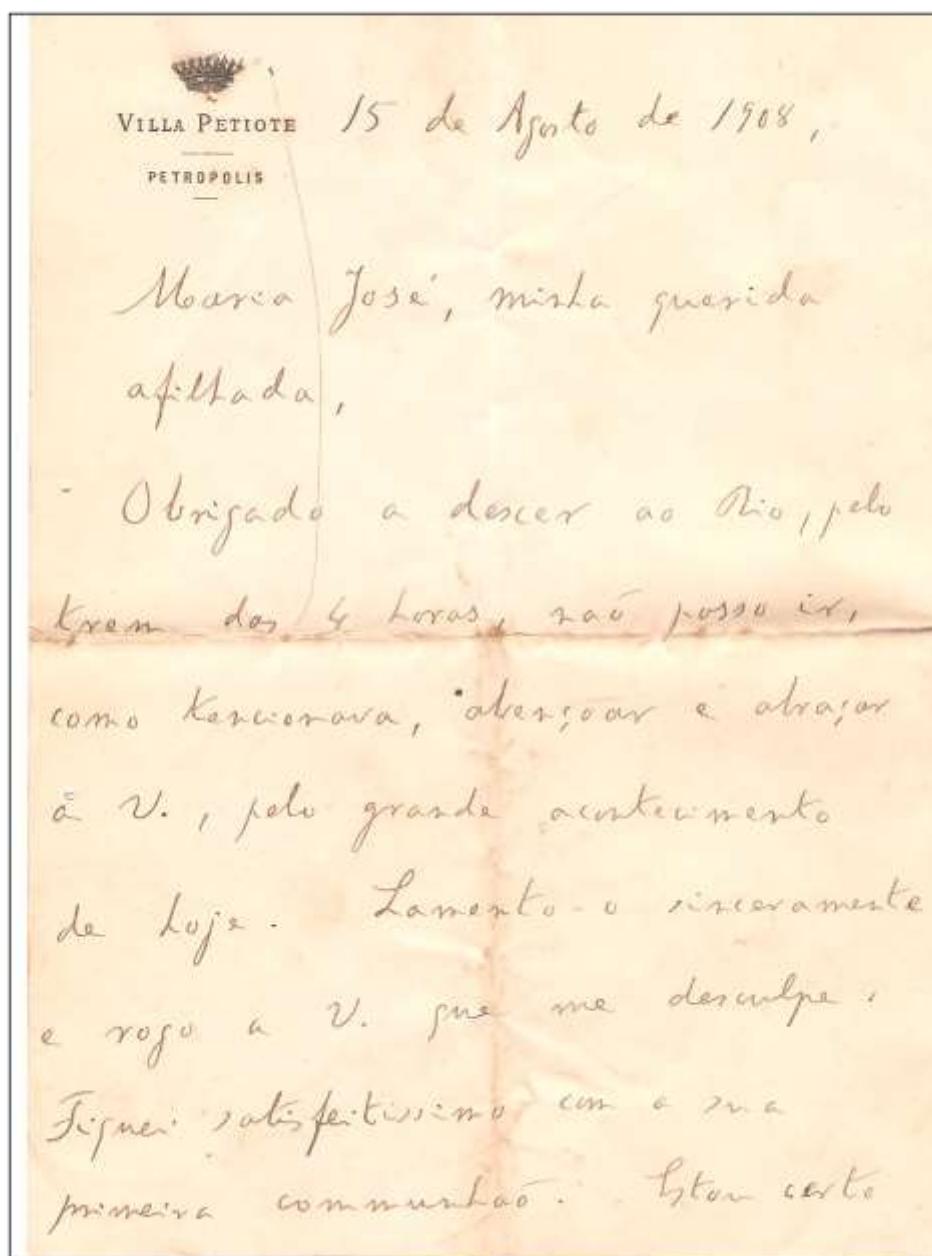 VILLA PETIOTE
PETROPOLIS
15 de Agosto de 1908,
Maria José, minha querida
afilhada,
Obrigado a descer ao Rio, pelo
trem das 4 horas, naõ posso ir,
como tencionava, abençoar e abraçar
à V., pelo grande acontecimento
de hoje. Lamento-o sinceramente
e rogo a V. que me desculpe.
Fiquei satisfeitissimo com a sua
primeira communhaõ. Estou certo